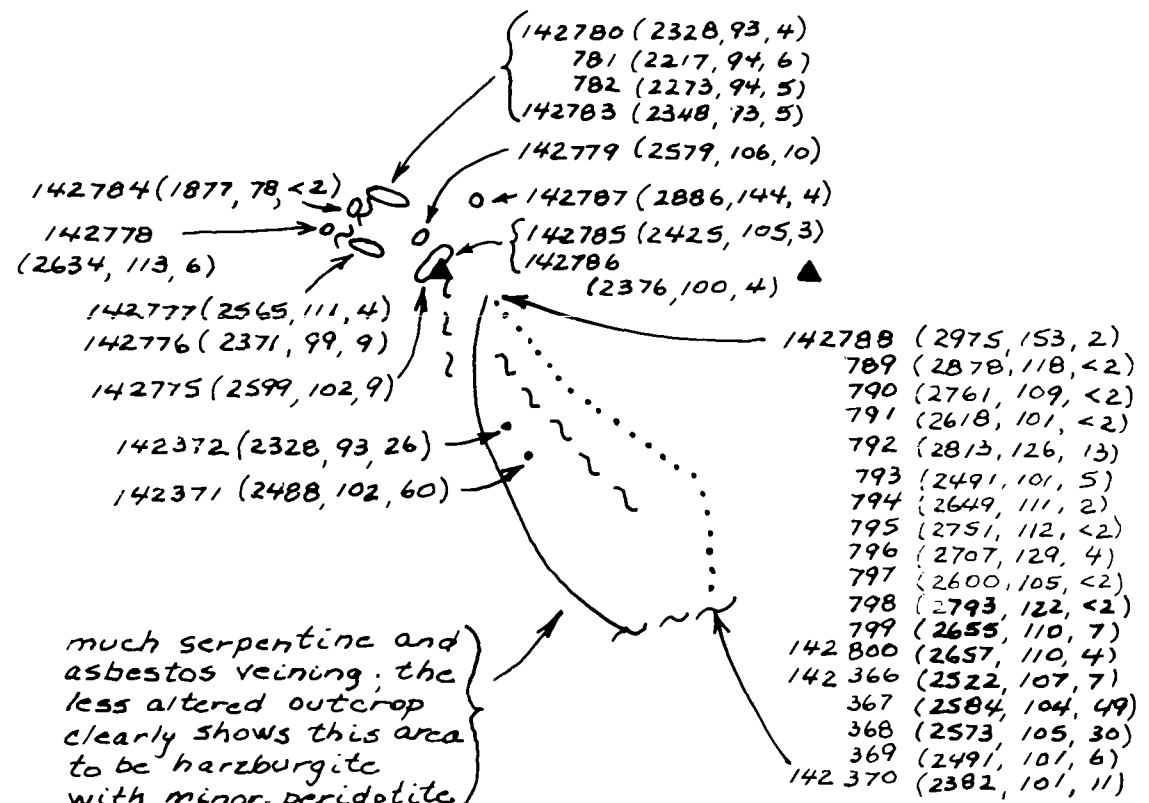 142780 (2328, 93, 4)
781 (2217, 94, 6)
782 (2273, 94, 5)
142783 (2348, 73, 5)
142779 (2579, 106, 10)
142784 (1877, 78, <2)
142787 (2886, 144, 4)
142778
(2634, 113, 6)
142785 (2425, 105, 3)
142786
(2376, 100, 4)
142777 (2565, 111, 4)
142776 (2371, 99, 9)
142775 (2599, 102, 9)
142372 (2328, 93, 26)
142371 (2488, 102, 60)
142788 (2975, 153, 2)
789 (2878, 118, <2)
790 (2761, 109, <2)
791 (2618, 101, <2)
792 (2813, 126, 13)
793 (2491, 101, 5)
794 (2649, 111, 2)
795 (2751, 112, <2)
796 (2707, 129, 4)
797 (2600, 105, <2)
798 (2793, 122, <2)
799 (2655, 110, 7)
142800 (2657, 110, 4)
142366 (2522, 107, 7)
367 (2584, 104, 49)
368 (2573, 105, 30)
369 (2491, 101, 6)
142370 (2382, 101, 11)
much serpentine and
asbestos veining; the
less altered outcrop
clearly shows this area
to be harzburgite
with minor peridotite